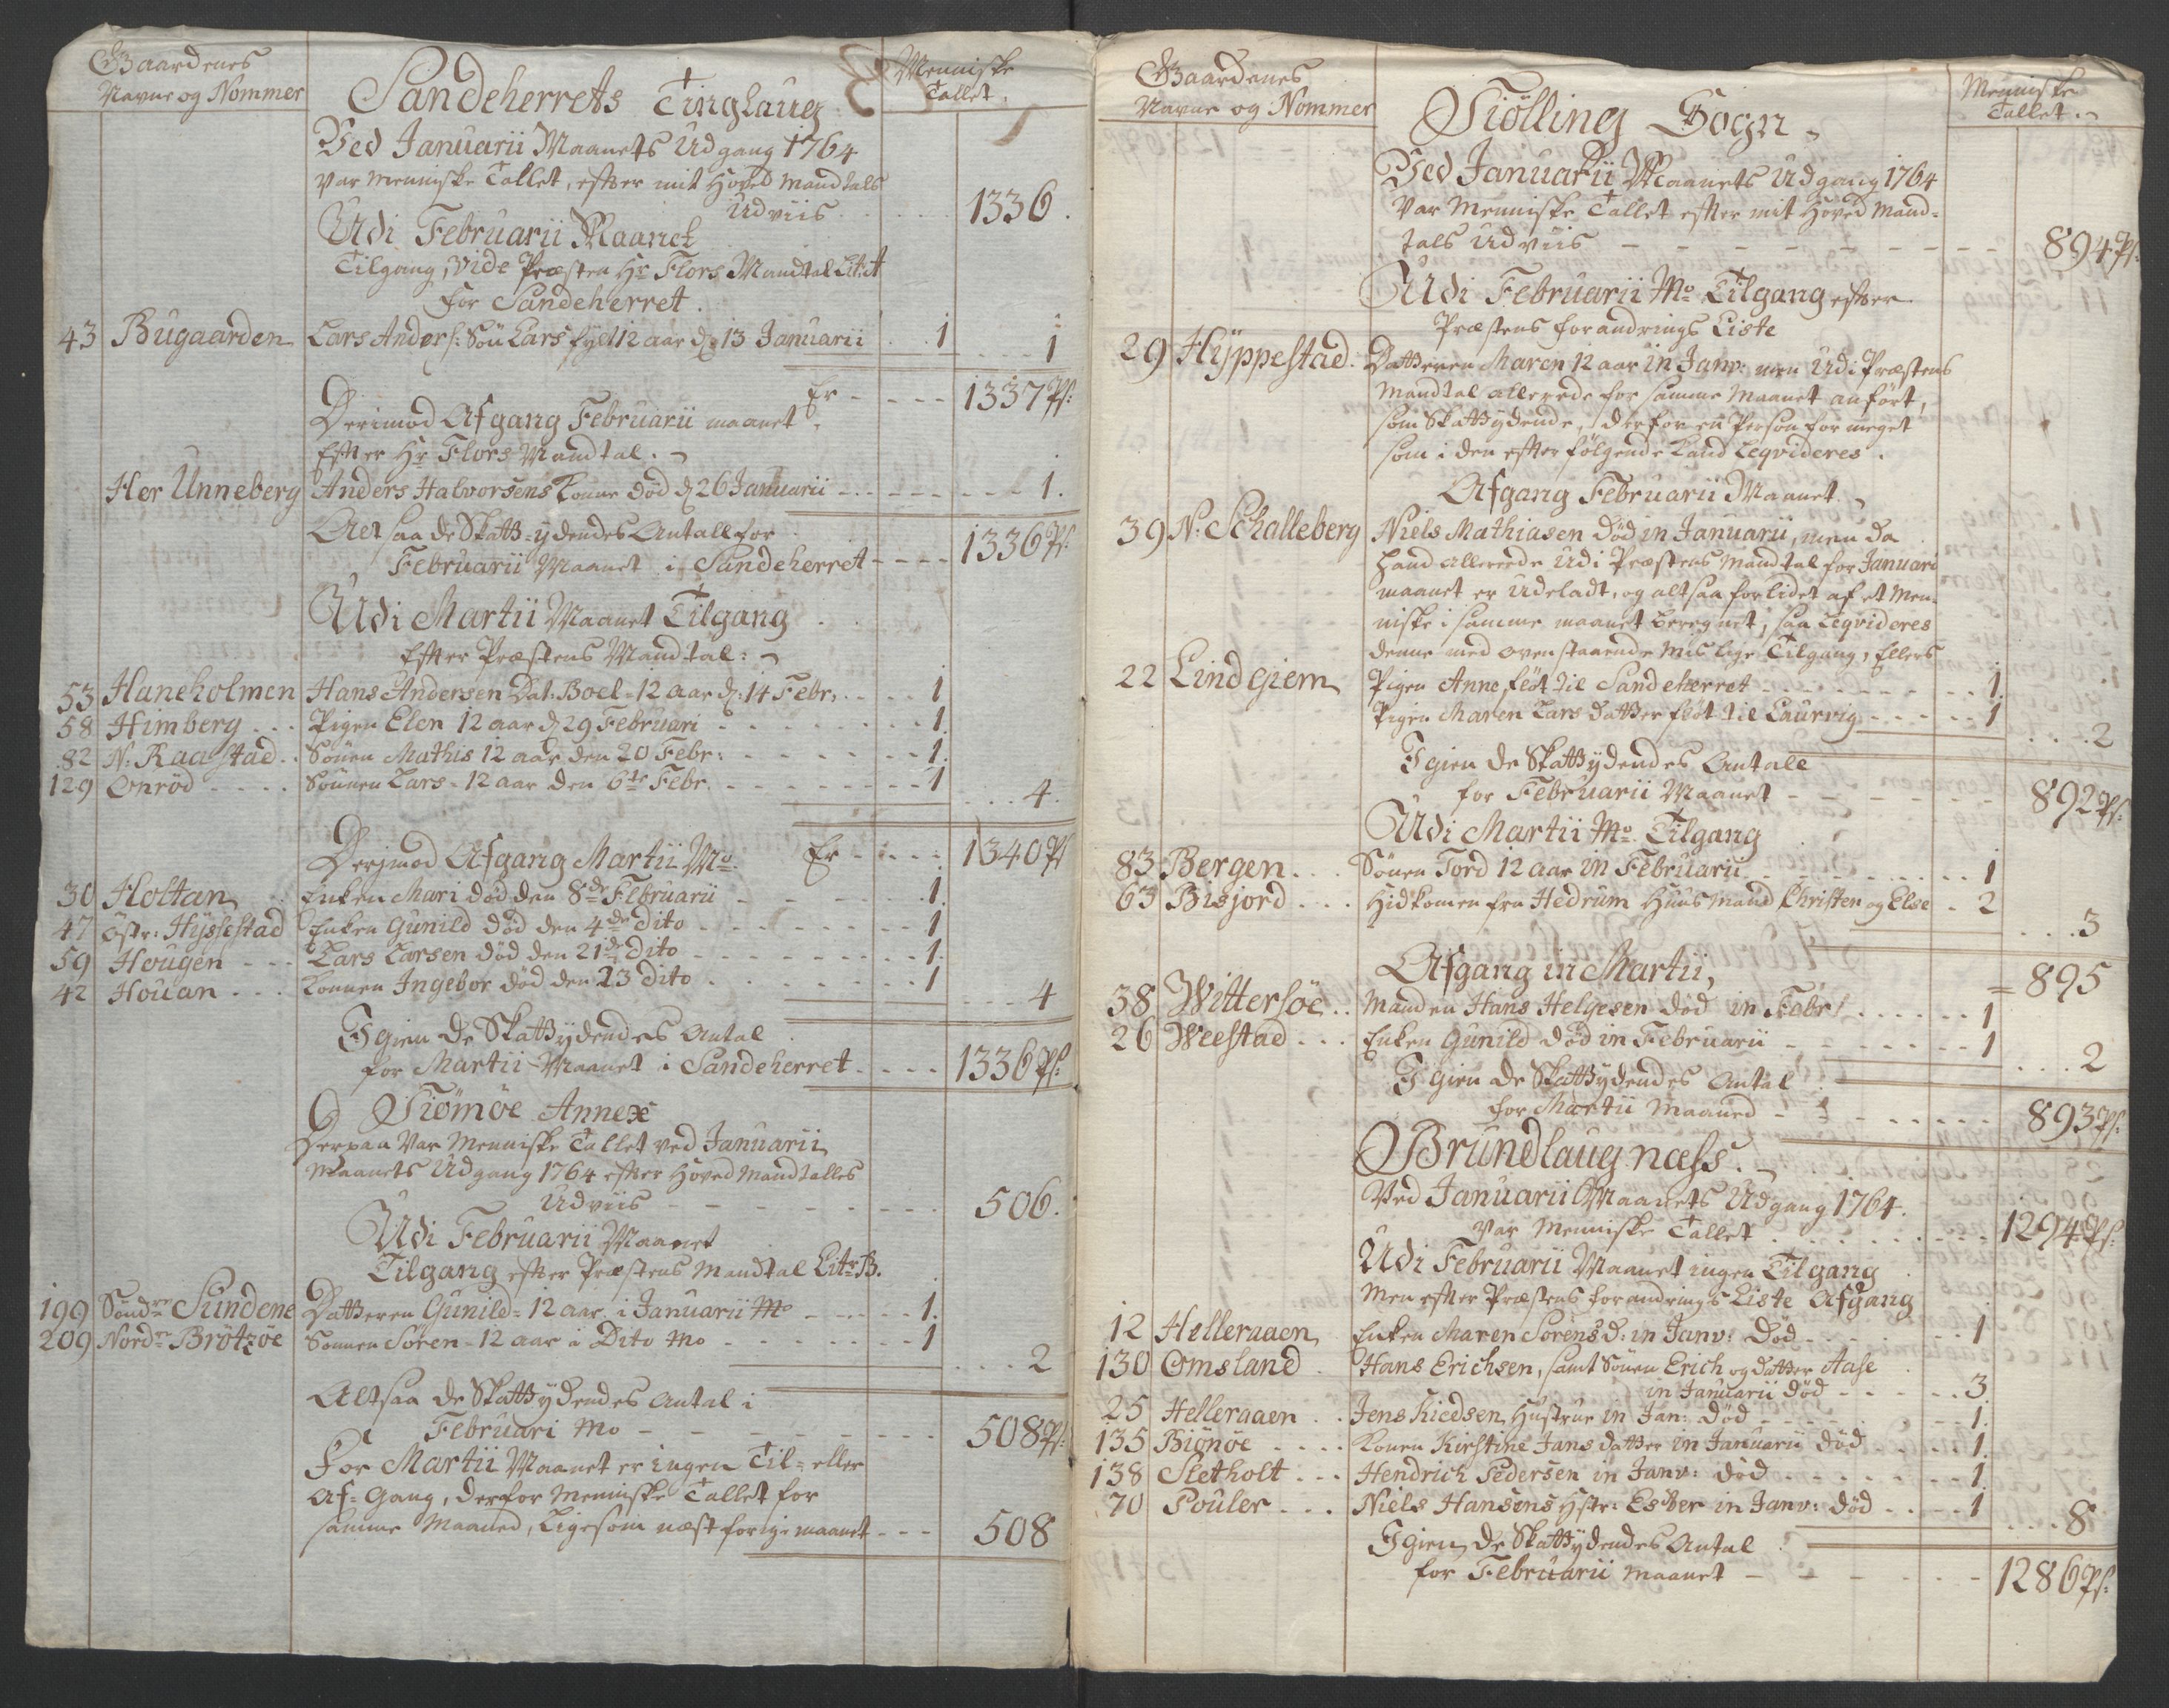 Gaardenes
Navne og Nommer
Menniske
Tallet.
Sandeherrets Tinglaug
Ved Januarii Maanets Udgang 1764
var Menniske Tallet, efter mit Hoved Mandtals
Udviis - - - 1336.
Udi Februarii Maanet
Tilgang, vide Præsten Hr Flors Mandtal Lit: A
for Sandeherret.
43 Bugaarden Lars Anders: Søn Lars fylt 12 aar d: 13 Januarii . . 1
. . . 1
Er - - - - 1337 Ps:
Derimod Afgang Februarii maanet
Efter Hr Flors Mandtal.
Her Unneberg Anders Halvorsens Konne død d 26 Januarii - - - 1.
Altsaa de Skattÿdendes Antall for
Februarii Maanet i Sandeherret - - - - 1336 Ps:
Udi Martii Maanet Tilgang
Efter Præstens Mandtal:
53 Haneholmen Hans Andersen Dat: Boel - 12 aar d: 14 Febr. . . . . 1
58 Himberg . . . Pigen Elen 12 aar d 29 Februari - - - 1.
82 N: Raastad . . Sønen Mathis 12 aar den 20 Febr: - - - 1.
129 Onrød . . . . Sønnen Lars - 12 aar den 6te Febr. - - - 1
. . . 4.
Er - - - - 1340 Ps
Derimod Afgang Martii Mo.
30 Holtan Enken Mari død den 8de Februarii - - - 1.
47 Østr: Hÿssestad Enken Gunild død den 4de dito . . . 1
59 Hougen - - - Lars Larsen død den 21de dito - - - 1.
42 Houan . . . Konnen Ingebor død den 23 dito . . . 1
. . . 4
Igien de Skattÿdendes Antal
for Martii Maanet i Sandeherret - - - - 1336 Ps:
Tiømøe Annex
Derpaa var Menniske Tallet ved Januarii
Maanets Udgang 1764 efter Hoved Mandtalles
Udviis - - - 506.
Udi Februarii Maanet
Tilgang efter Præstens Mandtal Litr B.
199 Søndre Sundene Datteren Gunild - 12 aar i Januarii Mo - - - 1.
209 Nordr Brøtzøe Sønnen Søren - 12 aar i Dito Mo - - - 1
. . . . 2
Altsaa de Skattÿdendes Antal i
Februari Mo - - - 508 Ps:
For Martii Maanet er ingen Til- eller
Af- Gang, derfor Menniske Tallet for
samme Maaned, ligesom næst forige maanet - - - 508
Gaardenes
Navne og Nommer
Menniske
Tallet.
Tiølling Sogn
Ved Januarii Maanets Udgang 1764
var Menniske Tallet efter mit Hoved Mand-
tals Udviis - - - 894 Ps:
Udi Februarii Mo Tilgang efter
Præstens forandrings Liste
29 Hÿppestad. Datteren Maren 12 aar in Janv: men udi Præstens
Mandtal allerede for samme Maanet anført,
som Skattÿdende, derfor en Person for meget
som i den efter følgende Land Leqvideres.
Afgang Februarii Maanet
39 N: Schalleberg Niels Mathiasen død in Januarii, men da
hand allerede udi Præstens Mandtal for Januarii
maanet er udeladt, og altsaa for lidet af et Men-
niske i samme maanet beregnet, saa Leqvideres
denne med ovenstaaende Mislige Tilgang, Ellers
22 Lindgiem Pigen Anne, fløt til Sandeherret - - - 1.
Pigen Maren Lars datter fløt til Laurvig - - - 1
. . . . 2
Igien de Skattÿdendes Antall
for Februarii Maanet - - - 892 Ps:
Udi Martii Mo Tilgang
83 Bergen . . . Sønen Tord 12 aar in Februarii - - - 1
63 Bisjord . . . Hidkomen fra Hedrum Huusmand Christen og Else - 2
. . . 3
= 895
Afgang in Martii,
38 Wittersøe . . Manden Hans Helgesen død in Febr: . . . 1
26 Weestad . . . Enken Gunild død in Februarii - - - 1
. . . . 2
Igien de Skattÿdendes Antal
for Martii Maaned - - - 893 Ps:
Brundlaugnæss.
Ved Januarii Maanets Udgang 1764.
var Menniske Tallet . . . 1294 Ps:
Udi Februarii Maanet ingen Tilgang
Men efter Præstens forandrings Liste Afgang
12 Helleraaen Enken Maren Sørens D: in Janv: død - - - 1
130 Omsland . Hans Erichsen, samt Sønen Erich og datter Aase
in Januarii død - - - 3
25 Helleraaen . . Jens Riedsen Hustrue in Jan: død - - - 1.
135 Biønøe . . . . Konen Kirstine Jans datter in Januarii død - - - 1.
138 Sletholt . . . Hendrich Pedersen in Janv: død - - - 1
70 Pouler . . . Niels Hansens Hstr: Ester in Janv: død . . . 1
. . . 8
Igien de Skattÿdendes Antal
for Februarii maanet - - - 1286 Ps: